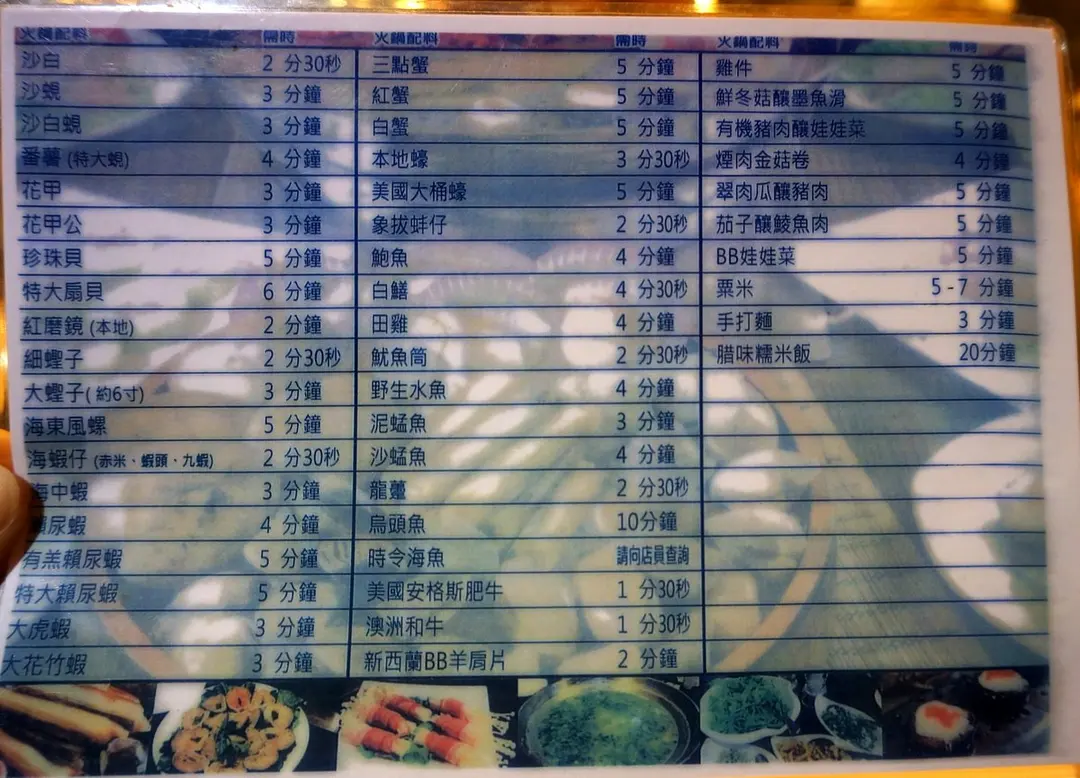 火鍋配料 需時
沙白 2 分30秒
沙蜆 3 分鐘
沙白蜆 3 分鐘
番薯 (特大蜆) 4 分鐘
花甲 3 分鐘
花甲公 3 分鐘
珍珠貝 5 分鐘
特大扇貝 6 分鐘
紅磨鏡 (本地) 2 分鐘
細蟶子 2 分30秒
大蟶子( 約6寸) 3 分鐘
海東風螺 5 分鐘
海蝦仔 (赤米、蝦頭、九蝦) 2 分30秒
海中蝦 3 分鐘
瀨尿蝦 4 分鐘
有羔瀨尿蝦 5 分鐘
特大瀨尿蝦 5 分鐘
大虎蝦 3 分鐘
大花竹蝦 3 分鐘
火鍋配料 需時
三點蟹 5 分鐘
紅蟹 5 分鐘
白蟹 5 分鐘
本地蠔 3 分30秒
美國大桶蠔 5 分鐘
象拔蚌仔 2 分30秒
鮑魚 4 分鐘
白鱔 4 分30秒
田雞 4 分鐘
魷魚筒 2 分30秒
野生水魚 4 分鐘
泥蜢魚 3 分鐘
沙蜢魚 4 分鐘
龍躉 2 分30秒
烏頭魚 10分鐘
時令海魚 請向店員查詢
美國安格斯肥牛 1 分30秒
澳洲和牛 1 分30秒
新西蘭BB羊肩片 2 分鐘
火鍋配料 需時
雞件 5 分鐘
鮮冬菇釀墨魚滑 5 分鐘
有機豬肉釀娃娃菜 5 分鐘
煙肉金菇卷 4 分鐘
翠肉瓜釀豬肉 5 分鐘
茄子釀鯪魚肉 5 分鐘
BB娃娃菜 5 分鐘
粟米 5 - 7 分鐘
手打麵 3 分鐘
腊味糯米飯 20分鐘